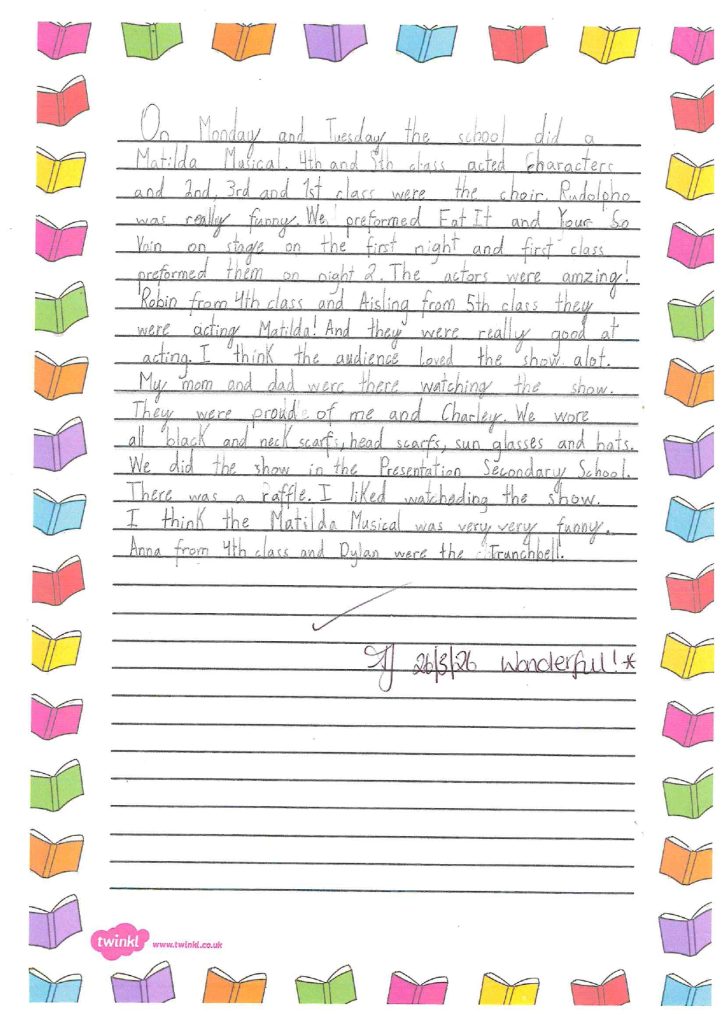 On Monday and Tuesday the school did a
Matilda Musical. 4th and 5th class acted characters
and 2nd, 3rd and 1st class were the choir. Rudolpho
was really funny. We preformed Eat It and Your So
Vain on stage on the first night and first class
preformed them on night 2. The actors were amzing!
Robin from 4th class and Aisling from 5th class they
were acting Matilda! And they were really good at
acting. I think the audience loved the show alot.
My mom and dad were there watching the show.
They were proud of me and Charley. We wore
all black and neck scarfs, head scarfs, sun glasses and hats.
We did the show in the Presentation Secondary School.
There was a raffle. I liked watcheding the show.
I think the Matilda Musical was very, very funny.
Anna from 4th class and Dylan were the Trunchbell.
26/3/26 Wonderful! *
twinkl www.twinkl.co.uk